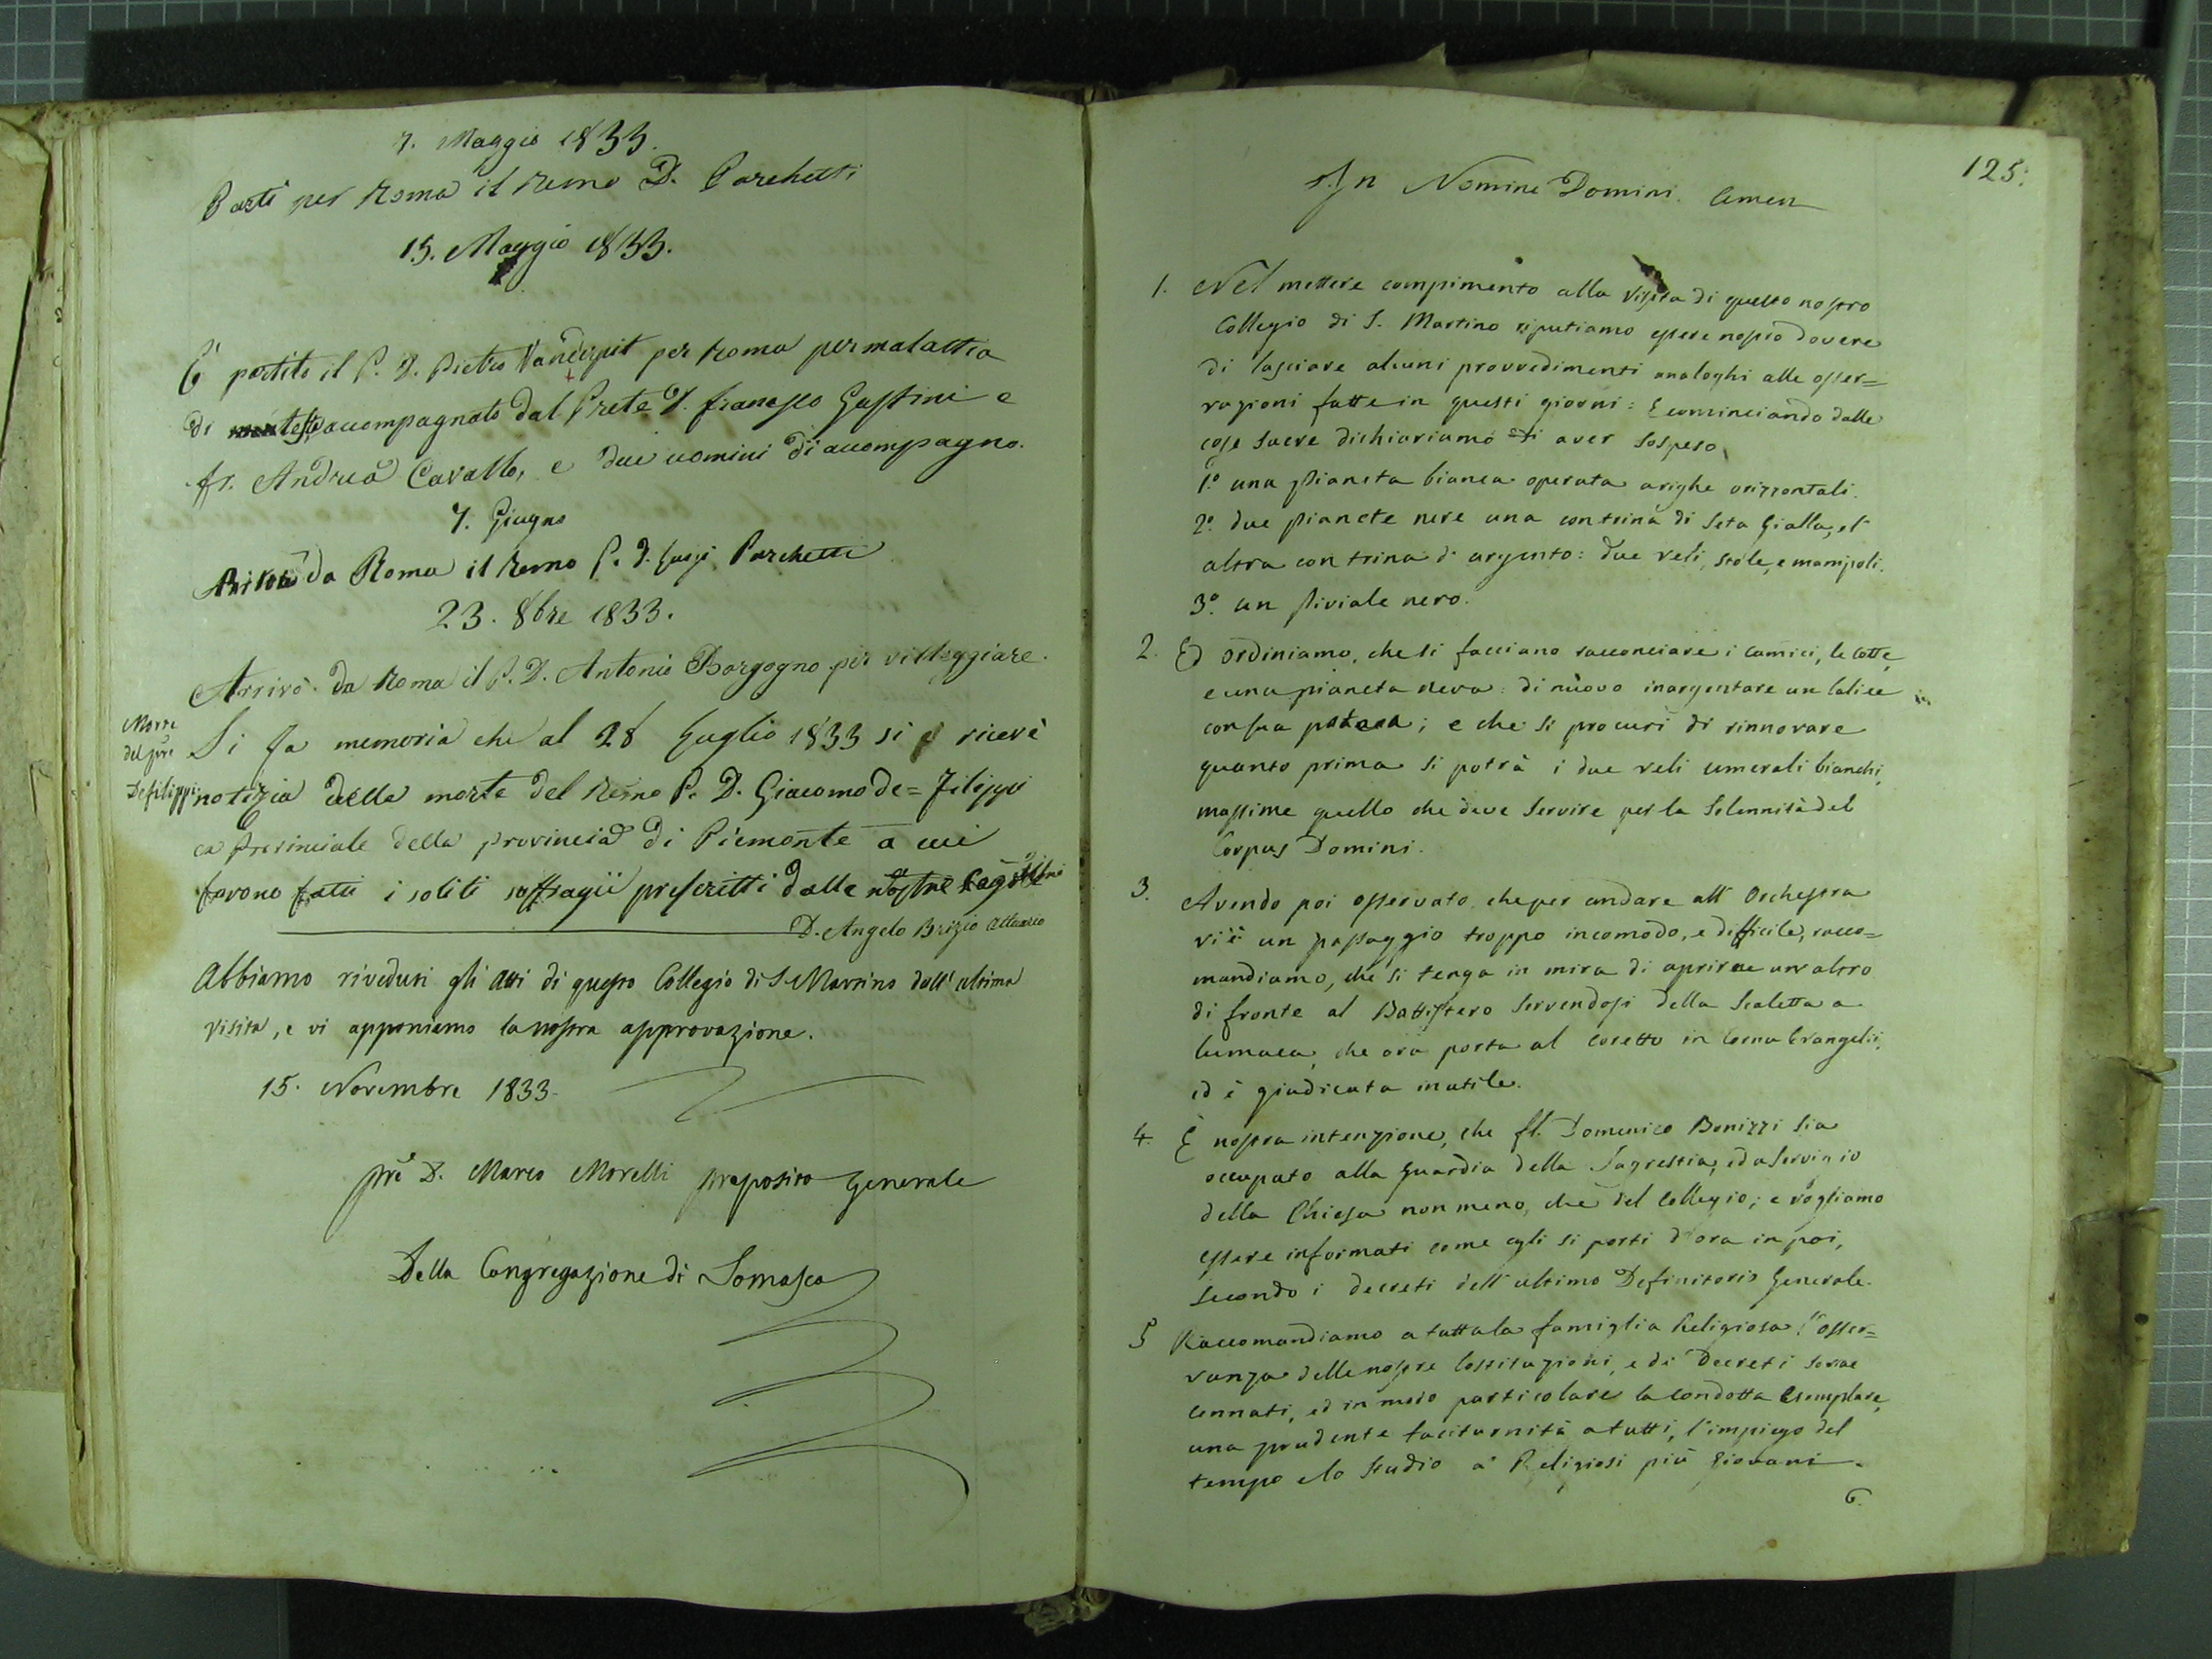 7. Maggio 1833.
Partì per Roma il Remo D. Parchetti
15. Maggio 1833.
É partito il P. D. Pietro Vanderpit per Roma per malattia
di accompagnato dal Prete D. Francesco Gastini e
fr. Andrea Cavallo, e due uomini di accompagno.
7. Giugno
da Roma il Remo P. D. Luigi Parchetti
23. 8bre 1833.
Arrivò da Roma il P. D. Antonio Borgogno per villeggiare.
Morte
del pre
Defilippi
Si fa memoria che al 28 Luglio 1833 si ricevè
notizia della morte del Remo P. D. Giacomo De=Filippi
ex Provinciale della provincia di Piemonte a cui
furono fatti i soliti suffragii prescritti dalle nostre
D. Angelo Brizio Attuario
Abbiamo riveduti gli Atti di questo Collegio di S. Martino dall'ultima
visita, e vi apponiamo la nostra approvazione.
15. Novembre 1833.
Pre D. Marco Morelli Preposito Generale
Della Congregazione di Somasca
125.
In Nomine Domini. Amen
1. Nel mettere compimento alla Visita di questo nostro
Collegio di S. Martino riputiamo essere nostro dovere
di lasciare alcuni provvedimenti analoghi alle osser=
vazioni fatte in questi giorni: E cominciando dalle
cose sacre dichiariamo di aver sospeso
1.º una Pianeta bianca operata a righe orizzontali.
2.º due Pianete nere una con trina di seta gialla, e l'
altra con trina d'argento: due veli, stole, e manipoli.
3.º un Piviale nero.
2. Ed ordiniamo, che si facciano racconciare i camici, le cotte,
e una pianeta nera: di nuovo inargentare un Calice
con sua patena; e che si procuri di rinnovare
quanto prima si potrà i due veli umerali bianchi,
massime quello che deve servire per la Solennità del
Corpus Domini.
3. Avendo poi osservato, che per andare all'Orchestra
vi è un passaggio troppo incomodo, e difficile, racco=
mandiamo, che si tenga in mira di aprirne un altro
di fronte al Battistero servendosi della Scaletta a
lumaca, che ora porta al coretto in Cornu Evangelii,
ed è giudicata inutile.
4. È nostra intenzione, che fr. Domenico Bonizzi sia
occupato alla guardia della Sagrestia, ed a servizio
della Chiesa non meno, che del Collegio; e vogliamo
essere informati come egli si porti d'ora in poi,
secondo i decreti dell'ultimo Definitorio Generale.
5 Raccomandiamo a tutta la famiglia Religiosa l'osser=
vanza delle nostre Costituzioni, e di Decreti sovrac
cennati, ed in modo particolare la condotta Esemplare,
una prudente taciturnità a tutti, l'impiego del
tempo e lo studio a' Religiosi più Giovani.
6.